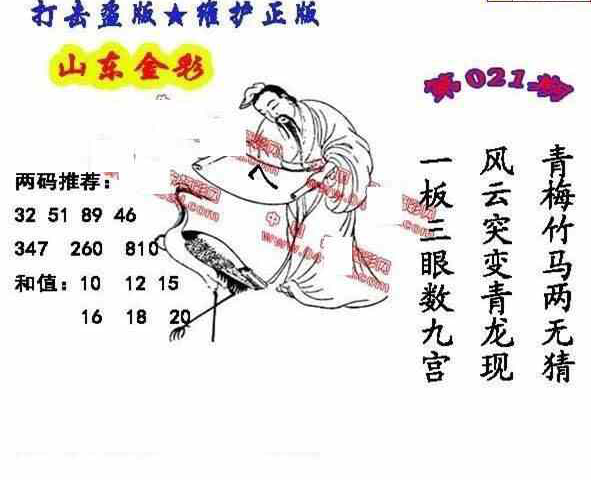 打击盗版★维护正版
山东金彩
第021期
两码推荐：
32 51 89 46
347 260 810
和值：10 12 15
16 18 20
青梅竹马两无猜
风云突变青龙现
一板三眼数九宫